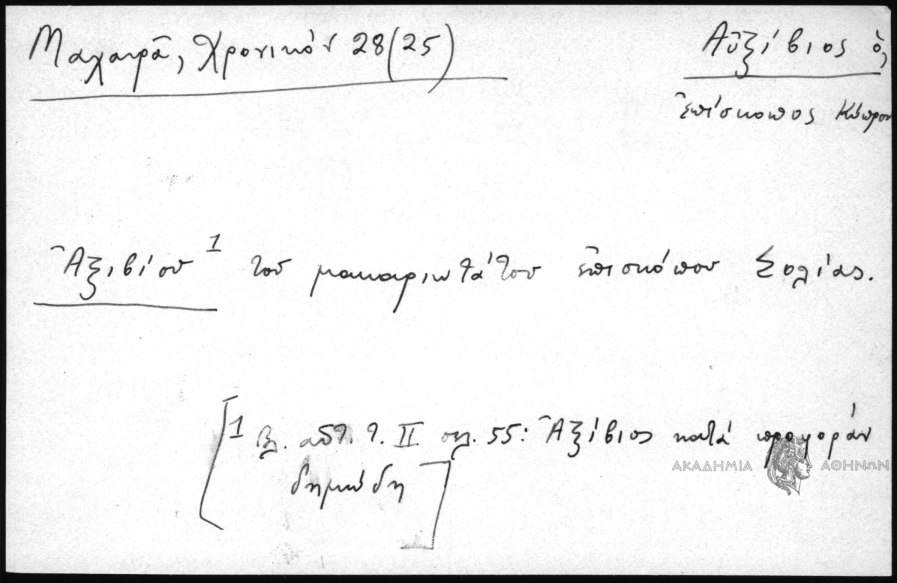 Μαχαιρᾶ, Χρονικόν 28(25)
Αὐξίβιος ὁ,
ἐπίσκοπος Κύπρου
Ἀξιβίου¹ τοῦ μακαριωτάτου ἐπισκόπου Σολίας.
[1 βλ. αὐτ. τ. II σελ. 55: Ἀξίβιος κατά προφοράν
δημώδη]
ΑΚΑΔΗΜΙΑ ΑΘΗΝΩΝ